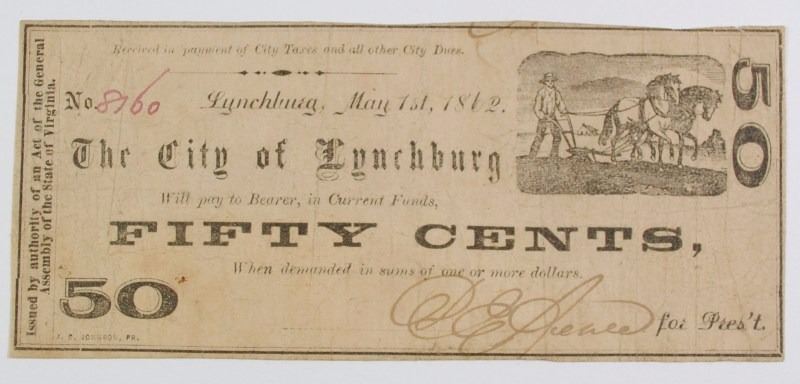 Received in payment of City Taxes and all other City Dues.
No. 8160 Lynchburg, May 1st, 1862.
The City of Lynchburg
Will pay to Bearer, in Current Funds,
FIFTY CENTS,
When demanded in sums of one or more dollars.
50
for Pres't.
50
Issued by authority of an Act of the General
Assembly of the State of Virginia.